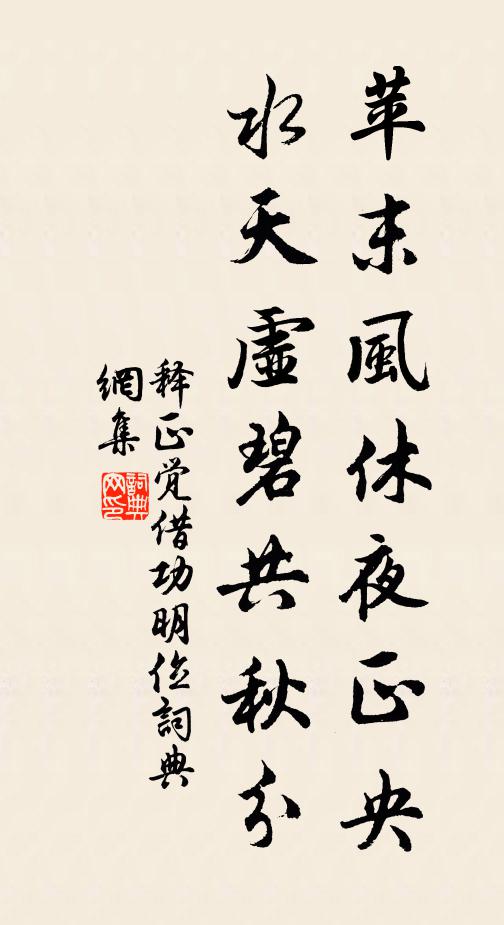 苹末風休夜正央
水天虛碧共秋分
释正觉借功明位詞典
網集
詞典
网印